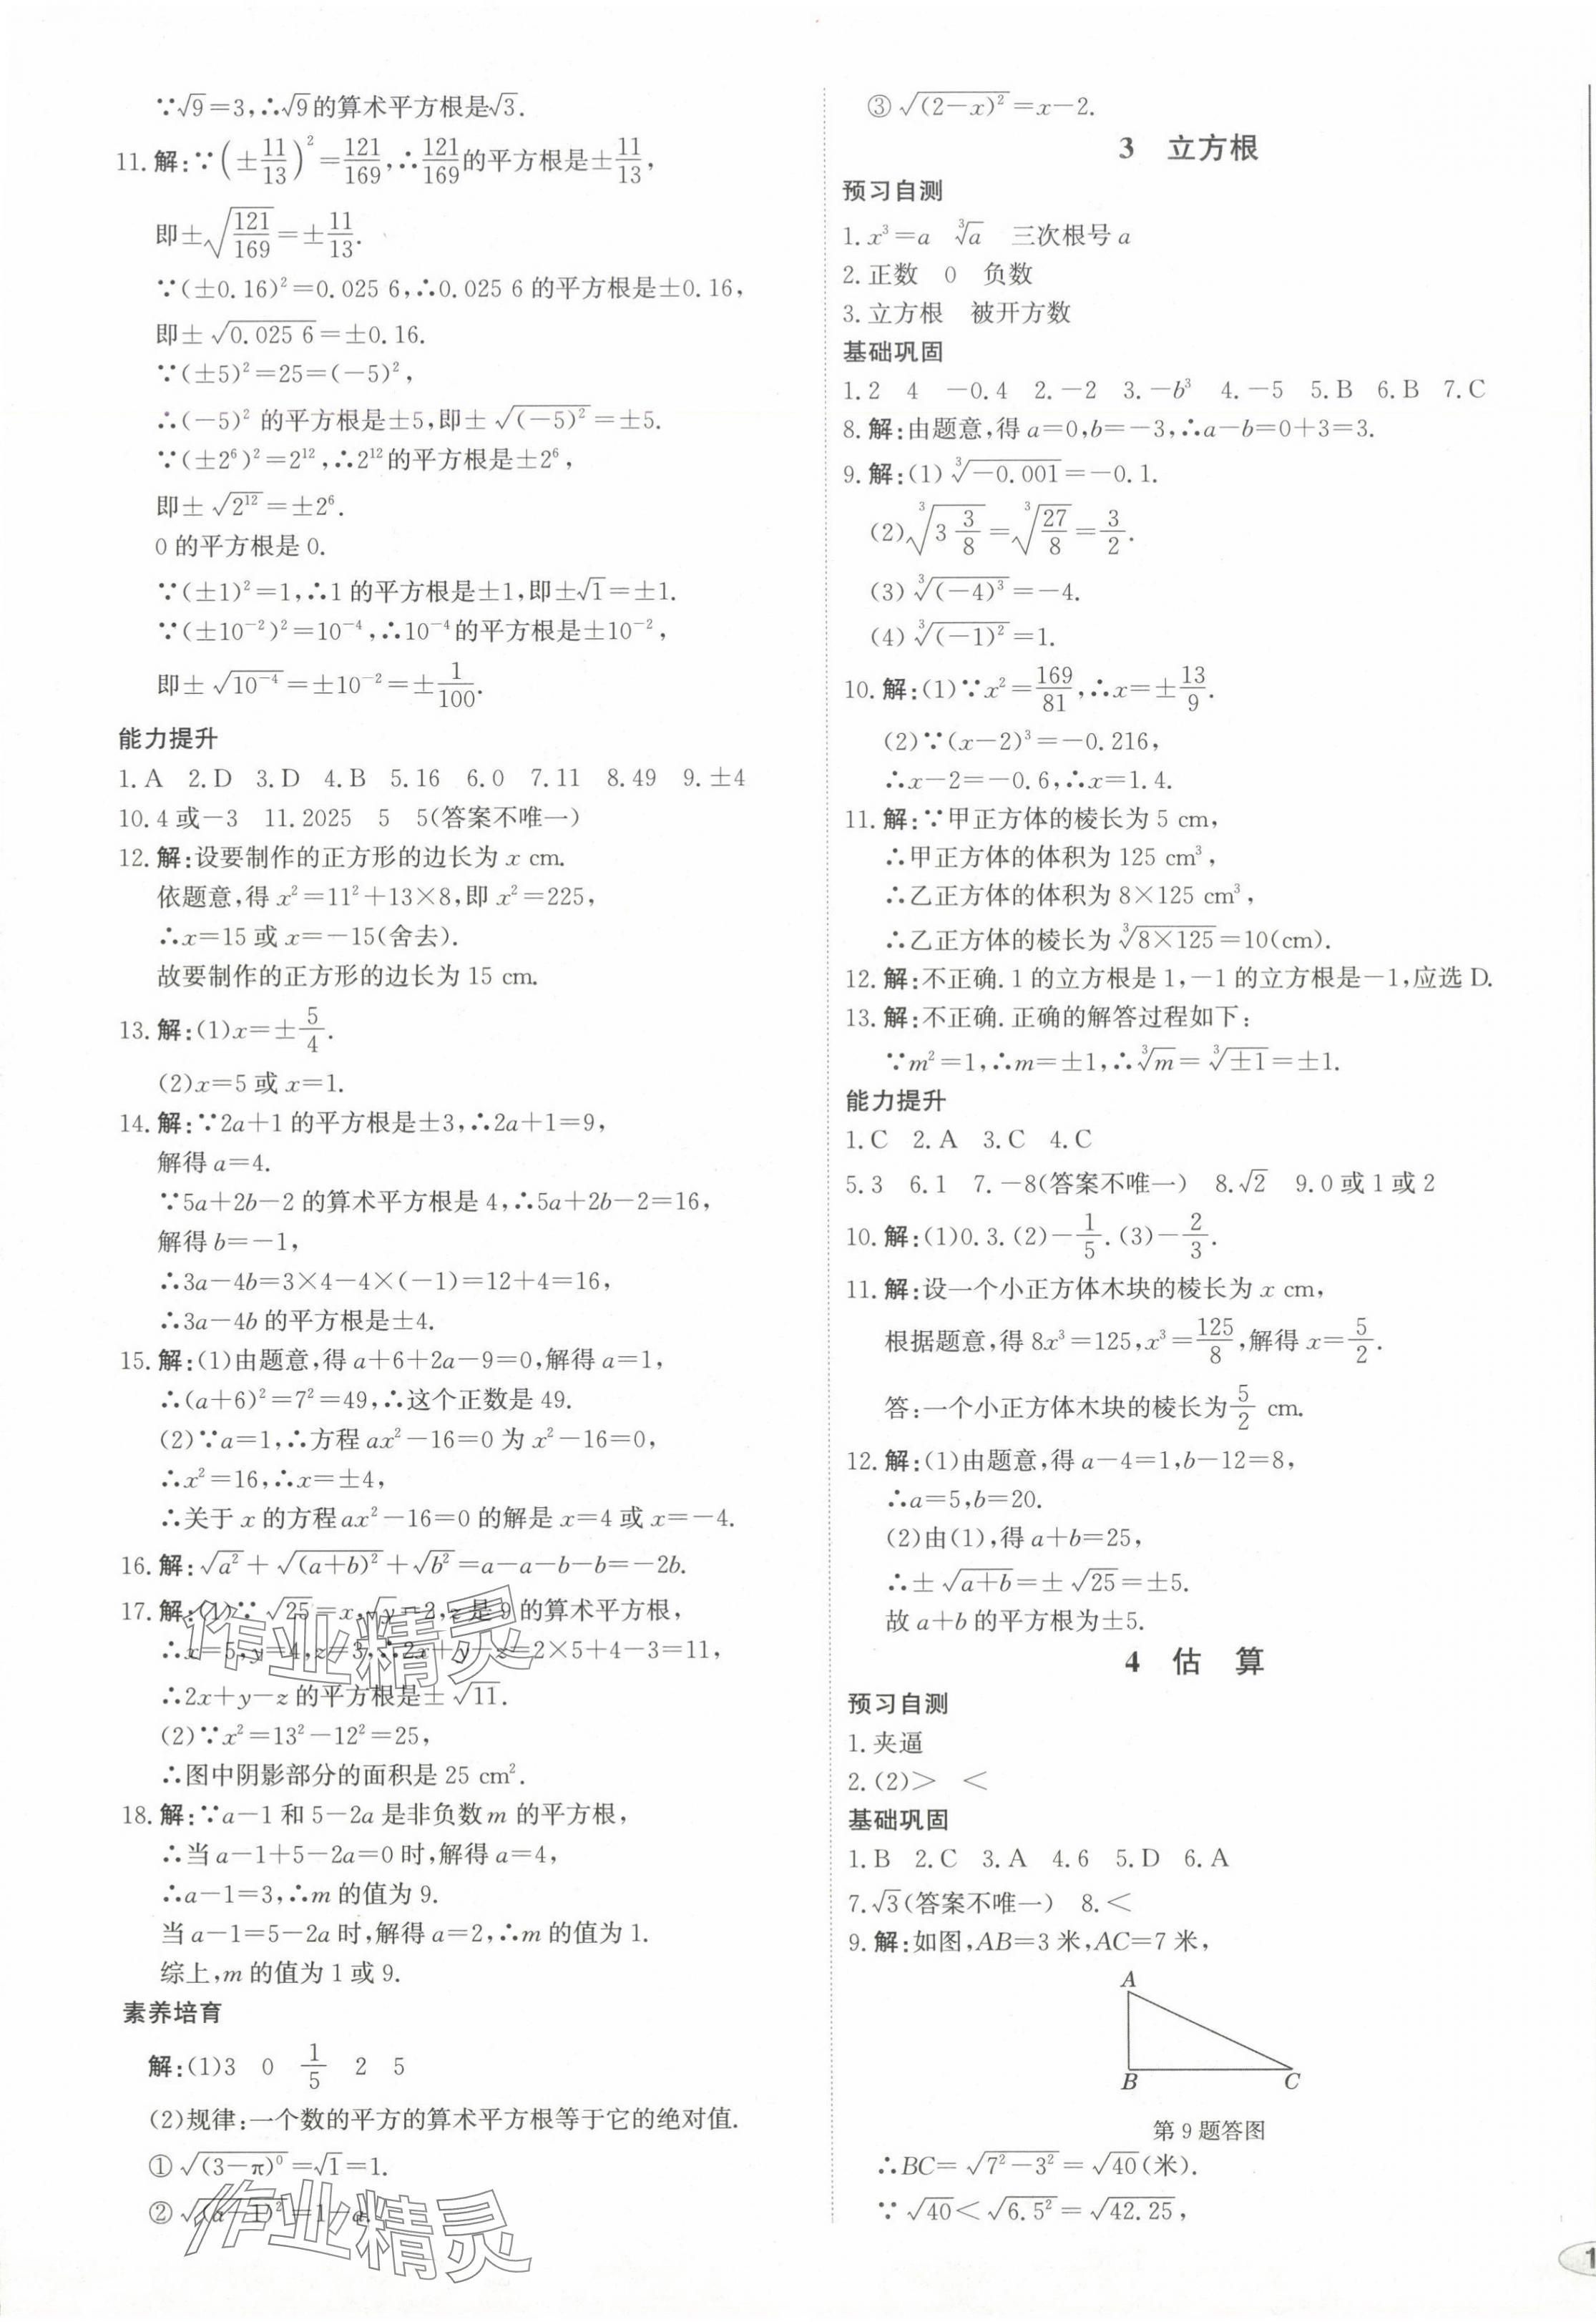 ∵√9=3,∴√9的算术平方根是√3.
11.解:∵(±11/13)²=121/169,∴121/169的平方根是±11/13,
即±√(121/169)=±11/13.
∵(±0.16)²=0.025 6,∴0.025 6的平方根是±0.16,
即±√(0.025 6)=±0.16.
∵(±5)²=25=(-5)²,
∴(-5)²的平方根是±5,即±√((-5)²)=±5.
∵(±2⁶)²=2¹²,∴2¹²的平方根是±2⁶,
即±√(2¹²)=±2⁶.
0的平方根是0.
∵(±1)²=1,∴1的平方根是±1,即±√1=±1.
∵(±10⁻²)²=10⁻⁴,∴10⁻⁴的平方根是±10⁻²,
即±√(10⁻⁴)=±10⁻²=±1/100.
能力提升
1.A 2.D 3.D 4.B 5.16 6.0 7.11 8.49 9.±4
10.4或-3 11.2025 5 5(答案不唯一)
12.解:设要制作的正方形的边长为x cm.
依题意,得x²=11²+13×8,即x²=225,
∴x=15或x=-15(舍去).
故要制作的正方形的边长为15 cm.
13.解:(1)x=±5/4.
(2)x=5或x=1.
14.解:∵2a+1的平方根是±3,∴2a+1=9,
解得a=4.
∵5a+2b-2的算术平方根是4,∴5a+2b-2=16,
解得b=-1,
∴3a-4b=3×4-4×(-1)=12+4=16,
∴3a-4b的平方根是±4.
15.解:(1)由题意,得a+6+2a-9=0,解得a=1,
∴(a+6)²=7²=49,∴这个正数是49.
(2)∵a=1,∴方程ax²-16=0为x²-16=0,
∴x²=16,∴x=±4,
∴关于x的方程ax²-16=0的解是x=4或x=-4.
16.解:√(a²)+√((a+b)²)+√(b²)=a-a-b-b=-2b.
17.解:(1)∵√25=x,√y=2,z是9的算术平方根,
∴x=5,y=4,z=3,∴2x+y-z=2×5+4-3=11,
∴2x+y-z的平方根是±√11.
(2)∵x²=13²-12²=25,
∴图中阴影部分的面积是25 cm².
18.解:∵a-1和5-2a是非负数m的平方根,
∴当a-1+5-2a=0时,解得a=4,
∴a-1=3,∴m的值为9.
当a-1=5-2a时,解得a=2,∴m的值为1.
综上,m的值为1或9.
素养培育
解:(1)3 0 1/5 2 5
(2)规律:一个数的平方的算术平方根等于它的绝对值.
①√((3-π)⁰)=√1=1.
②√((a-1)²)=1-a.
作业精灵
作业精灵
③√((2-x)²)=x-2.
3 立方根
预习自测
1.x³=a ³√a 三次根号a
2.正数 0 负数
3.立方根 被开方数
基础巩固
1.2 4 -0.4 2.-2 3.-b³ 4.-5 5.B 6.B 7.C
8.解:由题意,得a=0,b=-3,∴a-b=0+3=3.
9.解:(1)³√(-0.001)=-0.1.
(2)³√(3 3/8)=³√(27/8)=3/2.
(3)³√((-4)³)=-4.
(4)³√((-1)²)=1.
10.解:(1)∵x²=169/81,∴x=±13/9.
(2)∵(x-2)³=-0.216,
∴x-2=-0.6,∴x=1.4.
11.解:∵甲正方体的棱长为5 cm,
∴甲正方体的体积为125 cm³,
∴乙正方体的体积为8×125 cm³,
∴乙正方体的棱长为³√(8×125)=10(cm).
12.解:不正确.1的立方根是1,-1的立方根是-1,应选D.
13.解:不正确.正确的解答过程如下:
∵m²=1,∴m=±1,∴³√m=³√(±1)=±1.
能力提升
1.C 2.A 3.C 4.C
5.3 6.1 7.-8(答案不唯一) 8.√2 9.0或1或2
10.解:(1)0.3.(2)-1/5.(3)-2/3.
11.解:设一个小正方体木块的棱长为x cm,
根据题意,得8x³=125,x³=125/8,解得x=5/2.
答:一个小正方体木块的棱长为5/2 cm.
12.解:(1)由题意,得a-4=1,b-12=8,
∴a=5,b=20.
(2)由(1),得a+b=25,
∴±√(a+b)=±√25=±5.
故a+b的平方根为±5.
4 估 算
预习自测
1.夹逼
2.(2)> <
基础巩固
1.B 2.C 3.A 4.6 5.D 6.A
7.√3(答案不唯一) 8.<
9.解:如图,AB=3米,AC=7米,
A
B C
第9题答图
∴BC=√(7²-3²)=√40(米).
∵√40<√(6.5²)=√42.25,
1